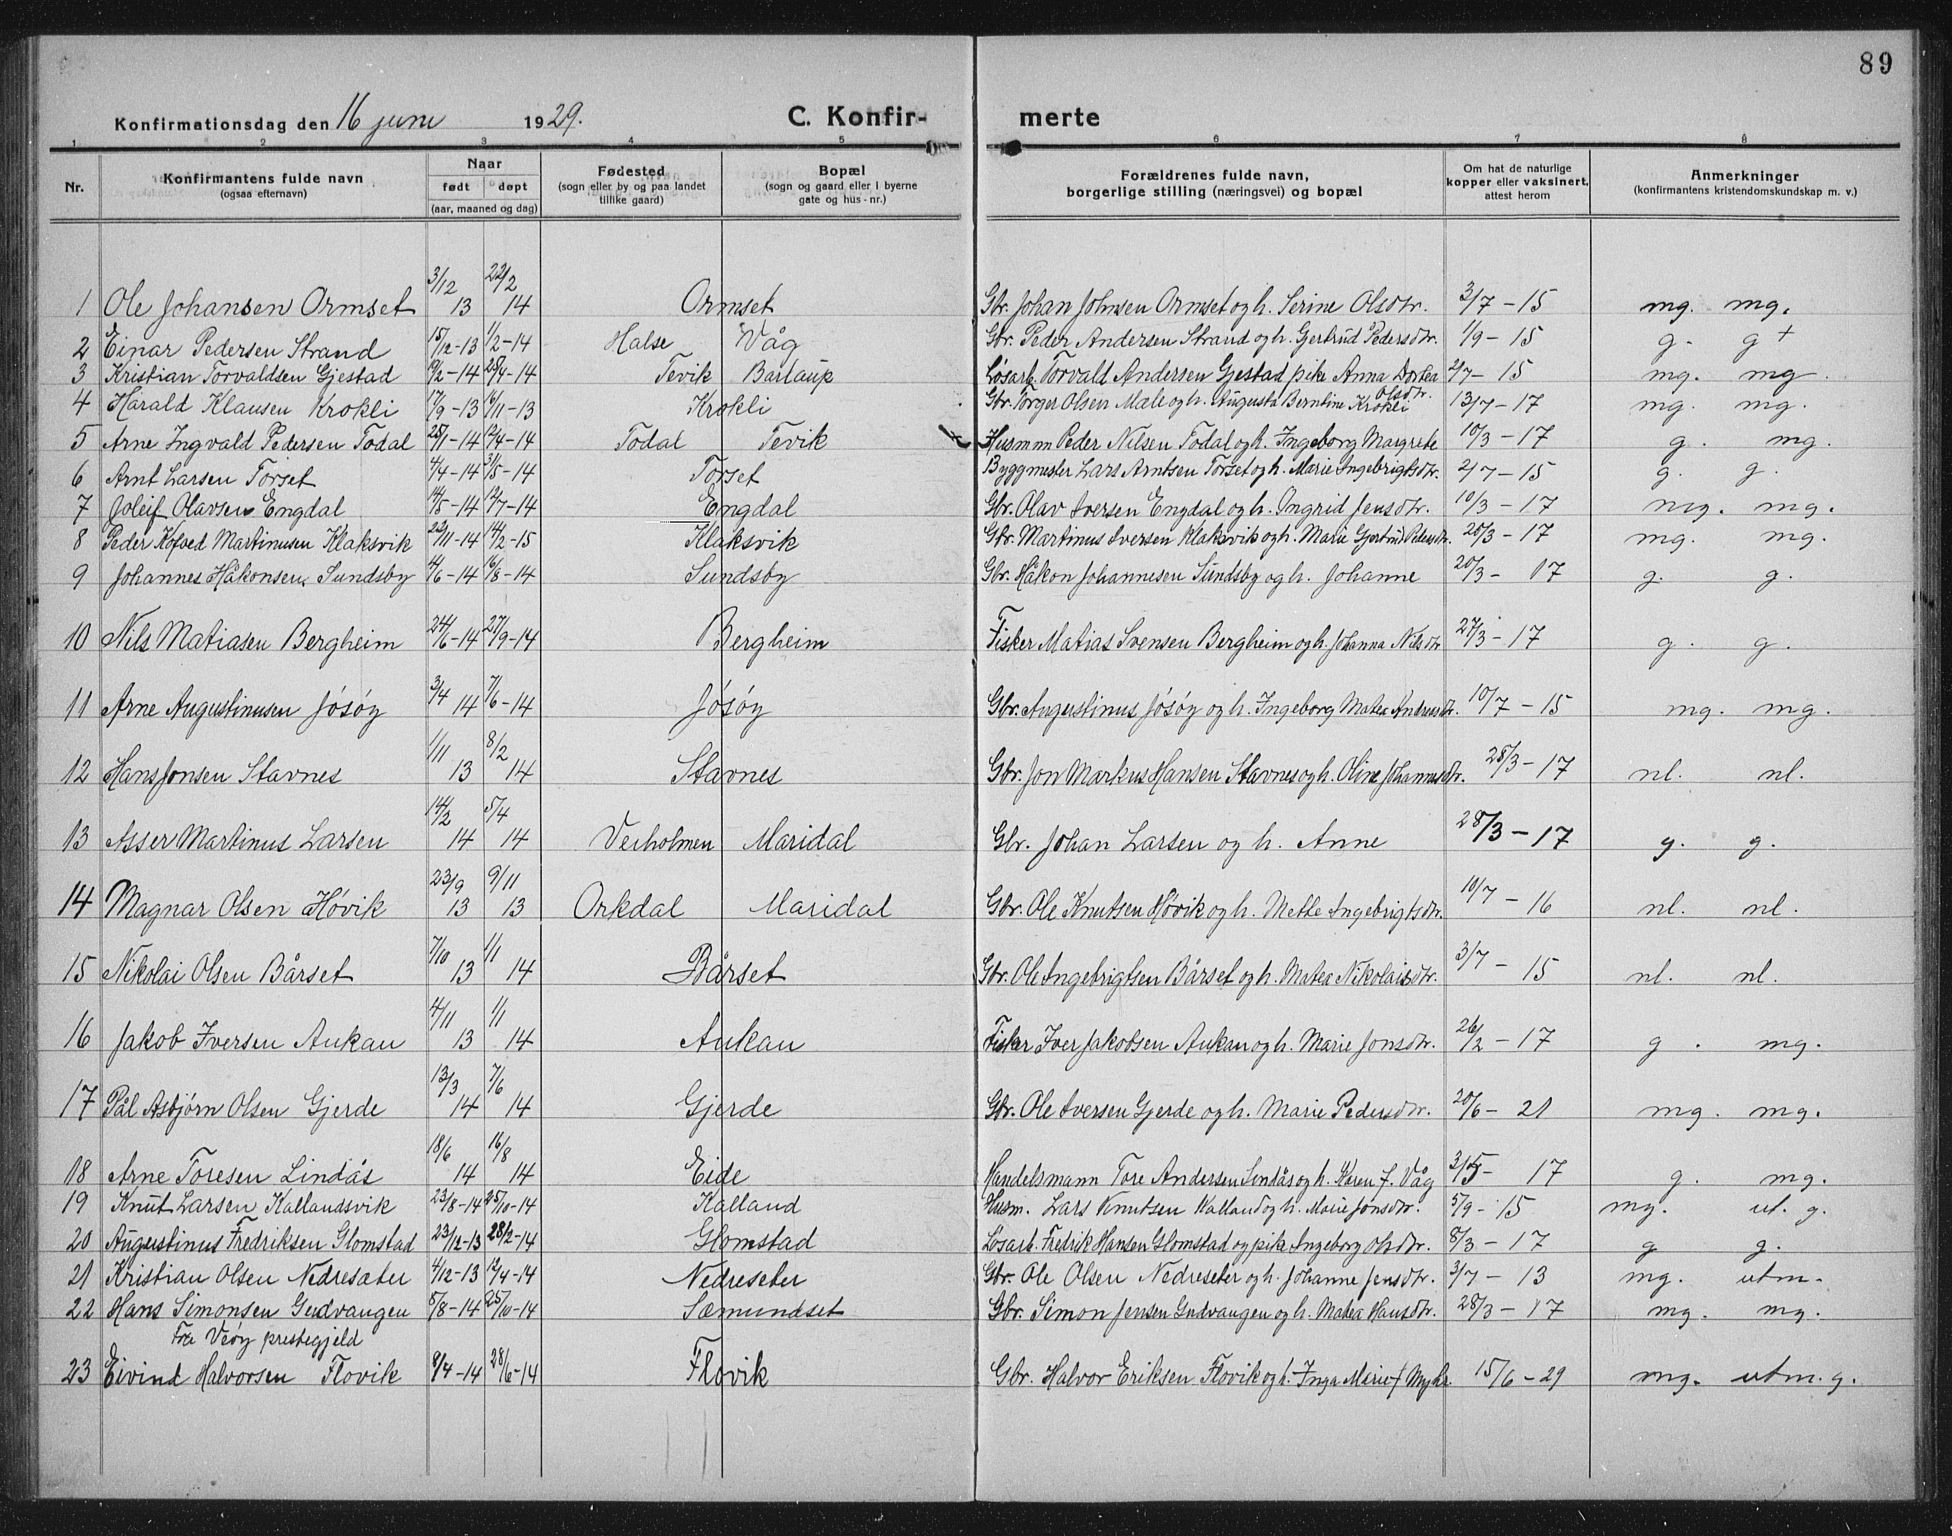 89
Konfirmationsdag den 16 juni 1929. C. Konfir- merte
1 2 3 4 5 6 7 8
Nr. Konfirmantens fulde navn (ogsaa efternavn) Naar født døpt (aar, maaned og dag) Fødested (sogn eller by og paa landet tillike gaard) Bopæl (sogn og gaard eller i byerne gate og hus-nr.) Forældrenes fulde navn, borgerlige stilling (næringsvei) og bopæl Om hat de naturlige kopper eller vaksinert, attest herom Anmerkninger (konfirmantens kristendomskundskap m. v.)
1 Ole Johansen Ormset 3/12 13 22/2 14 Ormset Gbr. Johan Johnsen Ormset og h. Serine Olsdtr. 3/7 - 15 mg. mg.
2 Einar Pedersen Strand 15/12-13 1/2-14 Halse Våg Gbr. Peder Andersen Strand og h. Gjertrud Pedersdtr. 1/9 - 15 g. g+
3 Kristian Torvaldsen Gjestad 19/2-14 25/4-14 Tevik Bartaup Løsarb. Torvald Andersen Gjestad pike Anna Dortea Olsdtr. 2/7 - 15 mg. mg.
4 Harald Klausen Krokli 17/9-13 16/11-13 Krokli Gbr. Torger Olsen Mæle og h. Augusta Berntine Krokli 13/7 - 17 mg. mg.
5 Arne Ingvald Pedersen Todal 25/1-14 12/4-14 Todal Tevik Husmm Peder Nilsen Todal og h. Ingeborg Margrete 10/3 - 17 g. mg.
6 Arnt Larsen Torset 4/4-14 31/5-14 Torset Byggmester Lars Arntsen Torset og h. Marie Ingebrigtsdtr. 2/7 - 15 g. g.
7 Joleif Olavsen Engdal 14/5-14 12/7-14 Engdal Gbr. Olav Iversen Engdal og h. Ingrid Jensdtr. 10/3 - 17 mg. mg.
8 Peder Kofoed Martinusen Klaksvik 22/11-14 14/2-15 Klaksvik Gbr. Martinus Iversen Klaksvik og h. Marie Gjertrud Pedersdtr. 20/3 - 17 mg. mg.
9 Johannes Håkonsen Sundsby 4/6-14 16/8-14 Sundsby Gbr. Håkon Johannesen Sundsby og h. Johanne 20/3 - 17 g. g.
10 Nils Matiasen Bergheim 24/6-14 27/9-14 Bergheim Fisker Matias Svensen Bergheim og h. Johanna Nilsdtr 27/3 - 17 g. g.
11 Arne Augustinusen Jøsøy 3/4 14 7/6-14 Jøsøy Gbr. Augustinus Jøsøy og h. Ingeborg Matea Andreasdtr. 10/7 - 15 mg. mg.
12 Hans Jonsen Stavnes 1/11 13 8/2 14 Stavnes Gbr. Jon Markus Hansen Stavnes og h. Oline Johannesdtr. 28/3 - 17 nl. nl.
13 Asser Martinus Larsen 14/2 14 5/4 14 Veiholmen Maridal Gbr. Johan Larsen og h. Anne 28/3 - 17 g. g.
14 Magnar Olsen Høvik 23/9 13 9/11 13 Orkdal Maridal Gbr. Ole Knutsen Høvik og h. Mette Ingebrigtsdtr. 10/7 - 16 nl. nl.
15 Nikolai Olsen Bårset 7/10 13 1/1 14 Bårset Gbr. Ole Ingebrigtsen Bårset og h. Matea Nikolaisdtr. 3/7 - 15 nl. nl.
16 Jakob Iversen Aukan 4/11 13 1/1 14 Aukan Fisker Iver Jakobsen Aukan og h. Marie Jonsdtr. 26/2 - 17 g. mg.
17 Pål Asbjørn Olsen Gjerde 13/3 14 7/6 14 Gjerde Gbr. Ole Iversen Gjerde og h. Marie Pedersdtr. 20/6 - 21 mg. mg.
18 Arne Toresen Lindås 18/6 14 16/8 14 Eide Handelsmann Tore Andersen Lindås og h. Karen f. Våg 3/5 - 17 g. mg.
19 Knut Larsen Kallandsvik 23/8-14 25/10-14 Kalland Husm. Lars Knutsen Kalland og h. Marie Jonsdtr. 5/9 - 15 mg. ut. g.
20 Augustinus Fredriksen Glomstad 23/12-13 28/2-14 Glomstad Løsarb. Fredrik Hansen Glomstad og pike Ingeborg Olsdtr. 8/3 - 17 g g.
21 Kristian Olsen Nedresæter 4/12-13 12/4-14 Nedreseter Gbr. Ole Olsen Nedreseter og h. Johanne Jensdtr. 3/7 - 13 mg. utm.
22 Hans Simonsen Gudvangen 5/8-14 25/10-14 Sæmundset Gbr. Simon Jensen Gudvangen og h. Matea Hansdtr. 28/3 - 17 mg. mg.
Fra Veøy prestegjeld
23 Eivind Halvorsen Flovik 8/4-14 28/6-14 Flovik Gbr. Halvor Eriksen Flovik og h. Inga Marie f. Myhr. 15/6 - 29 mg. utm. g.